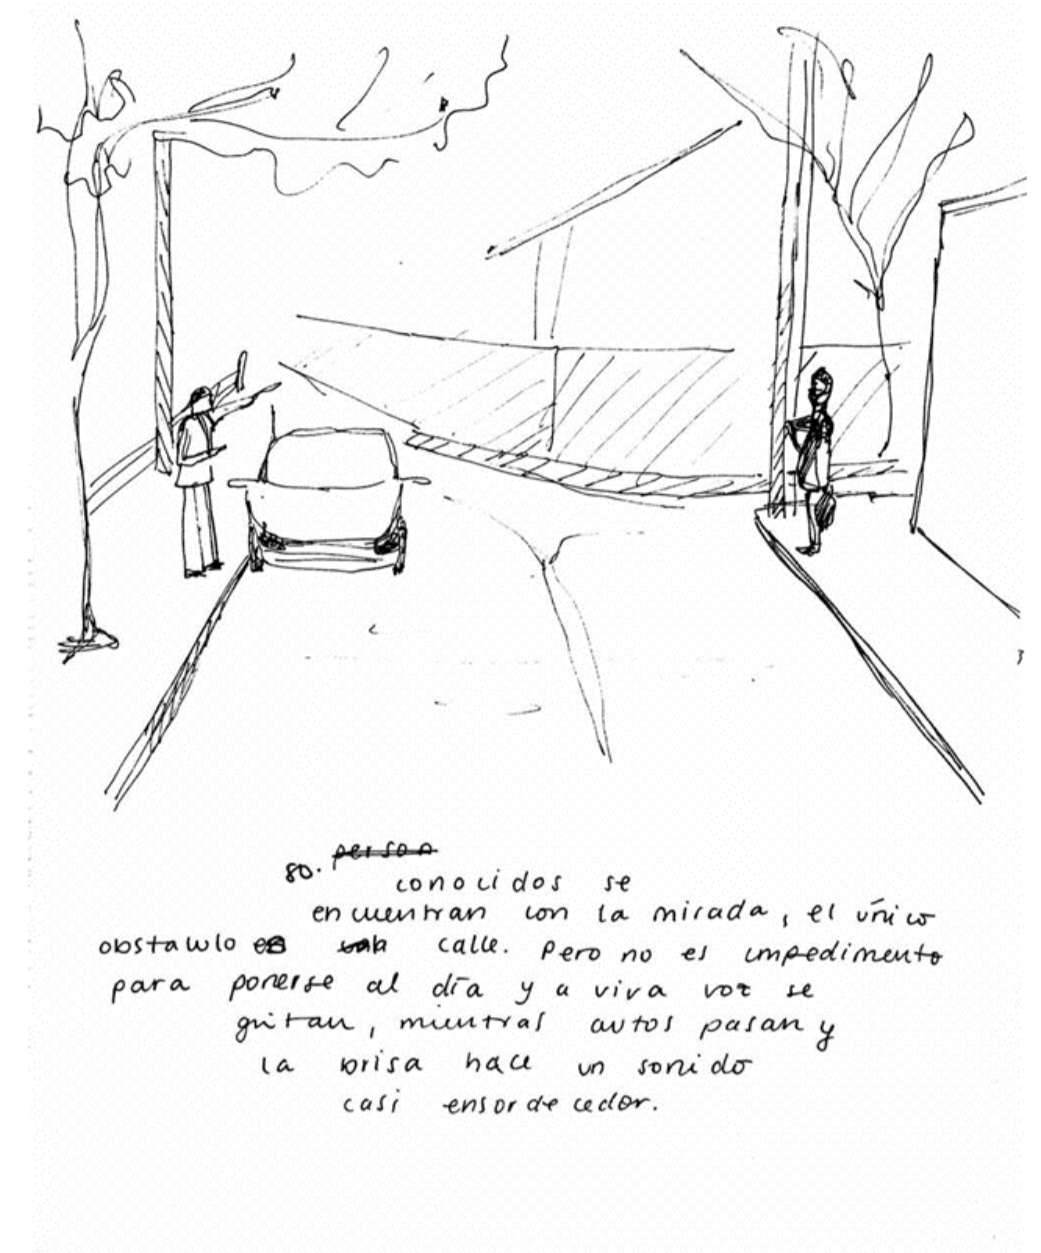 80. person
conocidos se
encuentran con la mirada, el único
obstaculo es calle. Pero no es impedimento
para ponerse al día y a viva voz se
gritan, mientras autos pasan y
la brisa hace un sonido
casi ensordecedor.